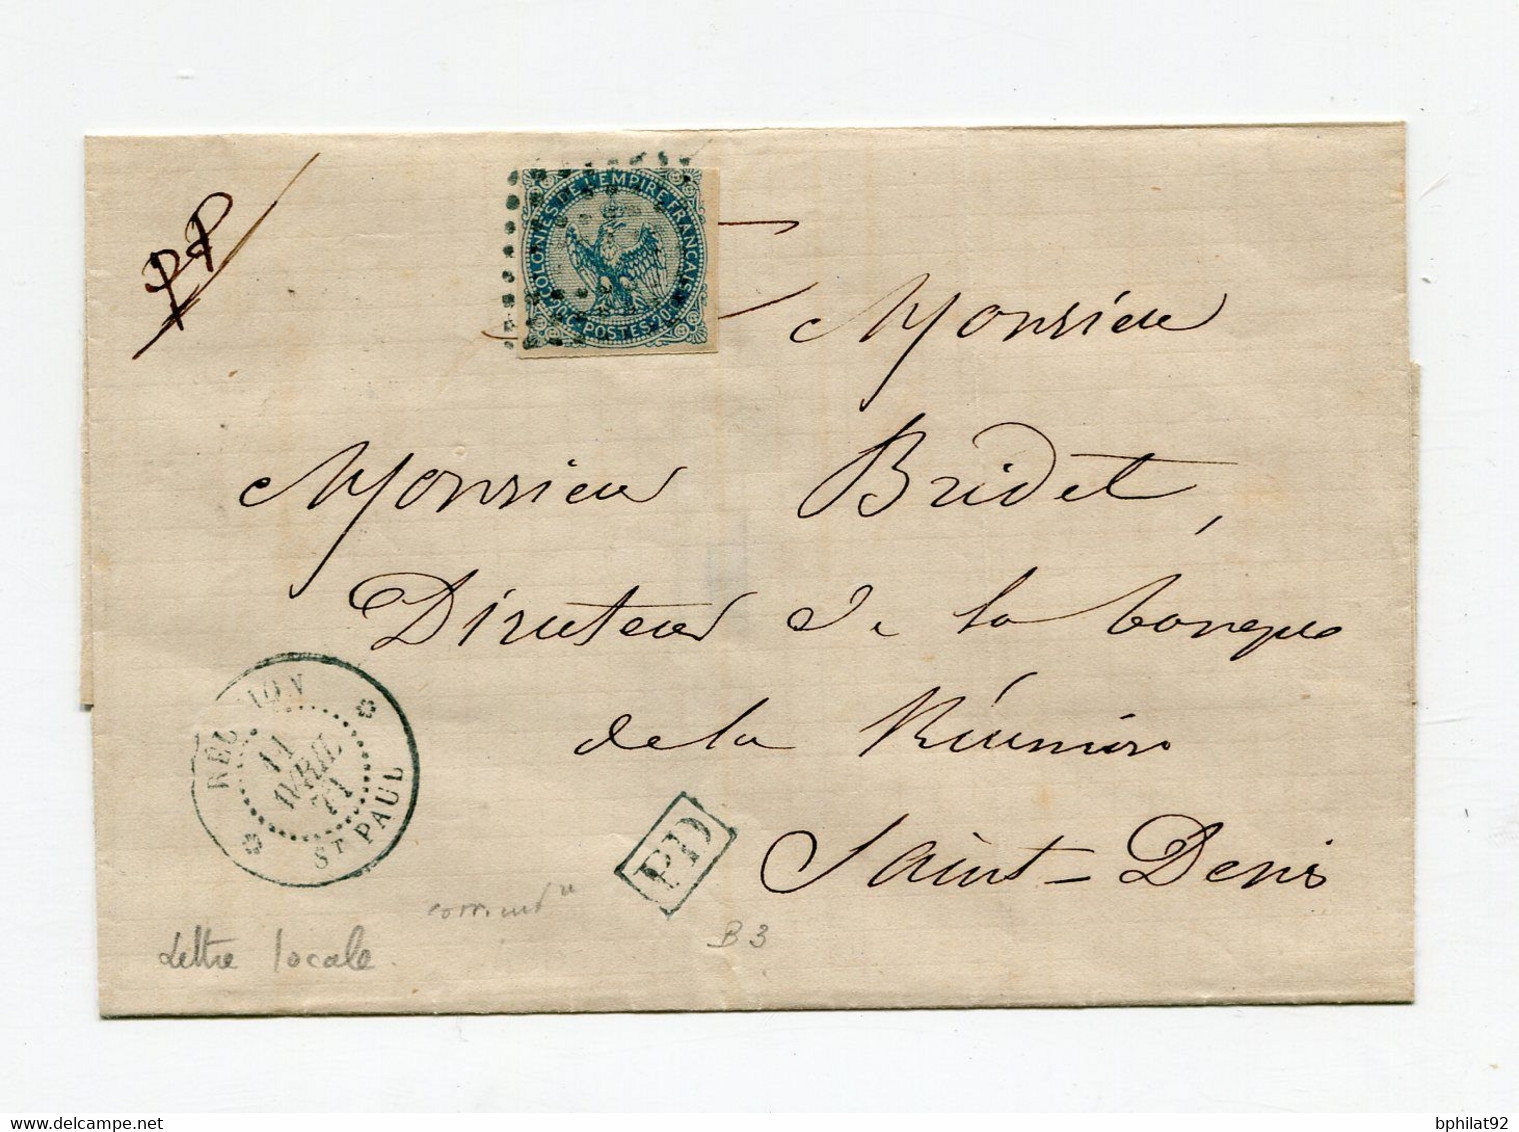 PP
COLONIES DE L'EMPIRE FRANÇAIS
20c POSTES 20c
Monsieur
Monsieur Bridet,
Directeur de la banque
de la Réunion
Saint-Denis
RÉUNION
11
AVRIL
71
ST PAUL
PD
B3
Lettre locale
bphilat92